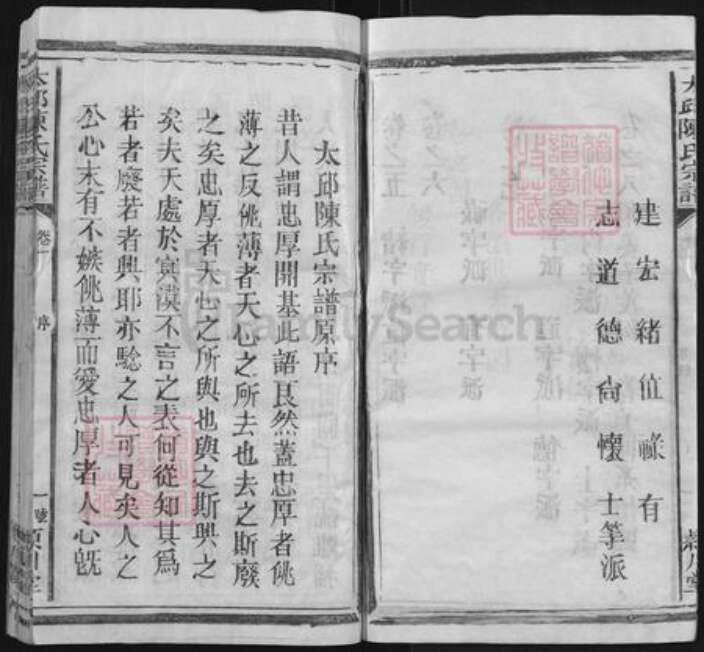 太邱陳氏宗譜
建宏緒值祿有
志道德尚懷士等派
太邱陳氏宗譜原序
昔人謂忠厚開基此語良然蓋忠厚者佻
薄之反佻薄者天心之所去也去之斯廢
之矣忠厚者天心之所與也與之斯興之
矣夫天處於寞漠不言之表何從知其為
若者廢若者興耶亦驗之人可見矣人之
公心未有不嫉佻薄而愛忠厚者人心旣
太邱陳氏宗譜
卷一
序
一
FamilySearch